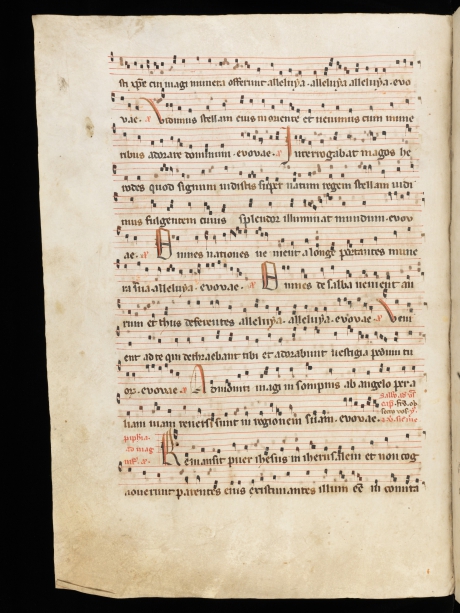 st xpē cui magi munera offerunt alleluya. alleluya alleluya. evo
vae. Vidimus stellam eius in oriente et venimus cum mune
ribus adorare dominum. evovae. Interrogabat magos he
rodes quod signum vidistis super natum regem stellam vidi
mus fulgentem cuius splendor illuminat mundum. evov
ae. Omnes nationes venient a longe portantes mune
ra sua alleluya. evovae. Omnes de saba venient au
rum et thus deferentes alleluya. alleluya. evovae. Veni
ent ad te qui detrahebant tibi et adorabunt vestigia pedum tu
or. evovae. Admoniti magi in sompnis ab angelo per a
liam viam reversi sunt in regionem suam. evovae.
Remansit puer ihesus in iherusalem et non cog
noverunt parentes eius existimantes illum eē in comita